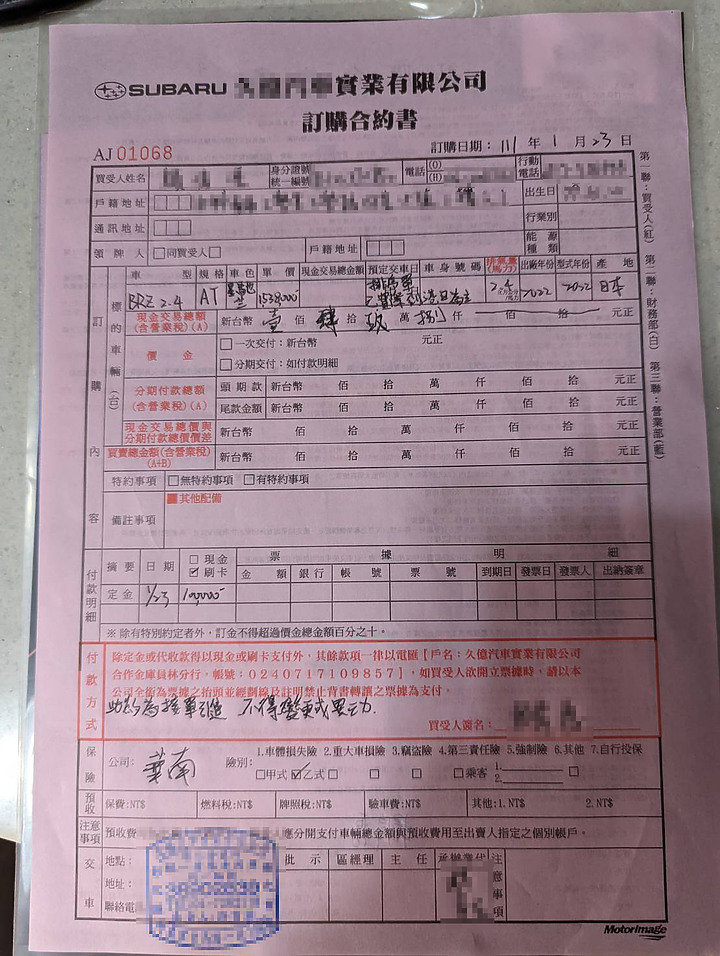 SUBARU 實業有限公司
訂購合約書
AJ 01068
訂購日期：111 年 1 月 23 日
買受人姓名 身分證號 統一編號 電話 (O) (H) 行動電話
戶籍地址 出生日
通訊地址 行業別
領牌人 □同買受人□ 戶籍地址 能源種類
訂購內容
標的車輛(台)
車型 規格 車色 單價 現金交易總金額 預定交車日 車身號碼 排氣量(馬力) 出廠年份 型式年份 產地
BRZ 2.4 AT 1538,000 2.4 2022 2022 日本
現金交易總額(含營業稅)(A) 新台幣 壹 佰 肆 拾 玖 萬 捌 仟 佰 拾 元正
價金 □一次交付：新台幣 元正
□分期交付：如付款明細
分期付款總額(含營業稅)(A) 頭期款 新台幣 佰 拾 萬 仟 佰 拾 元正
尾款金額 新台幣 佰 拾 萬 仟 佰 拾 元正
現金交易總價與分期付款總價價差 新台幣 佰 拾 萬 仟 佰 拾 元正
買賣總金額(含營業稅)(A+B) 新台幣 佰 拾 萬 仟 佰 拾 元正
特約事項 □無特約事項 □有特約事項
備註事項 其他配備
第一聯：買受人(紅) 第二聯：財務部(白) 第三聯：營業部(藍)
付款明細
摘要 日期 □現金 ☑刷卡 票據明細
金額 銀行 帳號 票號 到期日 發票日 發票人 出納簽章
定金 1/23 100,000
※除有特別約定者外，訂金不得超過價金總金額百分之十。
付款方式
除定金或代收款得以現金或刷卡支付外，其餘款項一律以電匯【戶名：久億汽車實業有限公司
合作金庫員林分行，帳號：0240717109857】，如買受人欲開立票據時，請以本
公司全銜為票據之抬頭並經劃線及註明禁止背書轉讓之票據為支付。
不得變更或異動
買受人簽名：
保險
公司：華南 險別： 1.車體損失險 2.重大車損險 3.竊盜險 4.第三責任險 5.強制險 6.其他 7.自行投保
□甲式 ☑乙式 □ □ □ □ □乘客 1. 2.
預收 保費:NT$ 燃料稅:NT$ 牌照稅:NT$ 驗車費:NT$ 其他:1. NT$ 2. NT$
注意事項 預收費 應分開支付車輛總金額與預收費用至出賣人指定之個別帳戶。
交車
地點：
地址：
聯絡電
批示 區經理 主任 承辦業代 注意事項
MotorImage